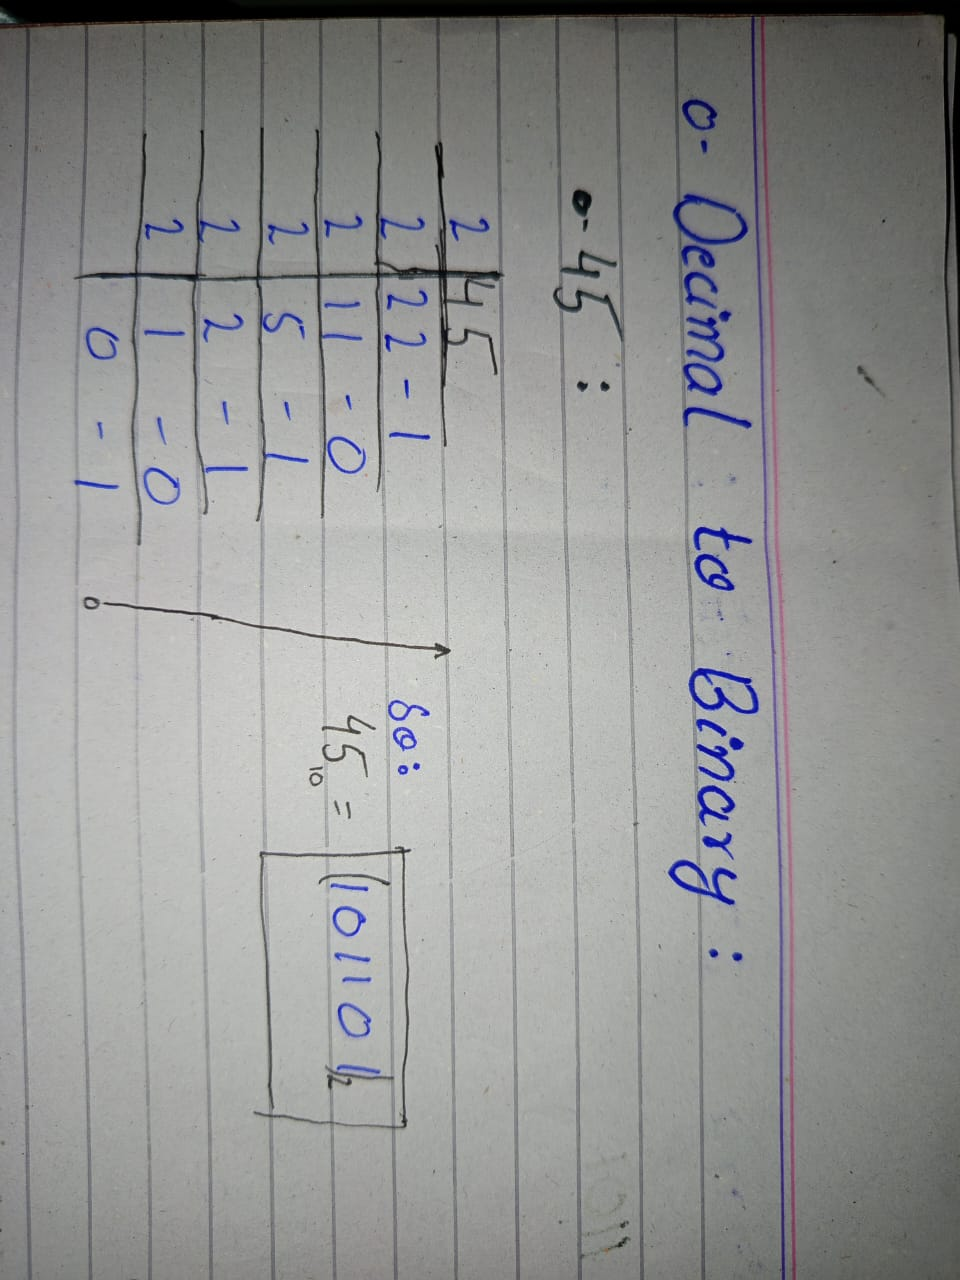 o- Decimal to Binary :
o- 45 :
2 45
2 22 - 1
2 11 - 0
2 5 - 1
2 2 - 1
2 1 - 0
0 - 1
So:
45₁₀ = (101101)₂